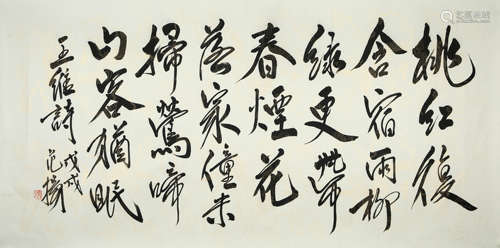 桃紅復
含宿雨柳
綠更帶
春煙花
落家僮未
掃鶯啼
山客猶眠
王維詩戊戌
范揚